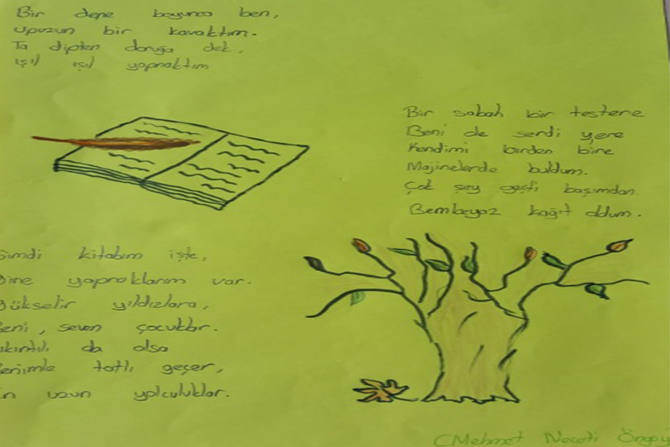 Bir dene boyunca ben,
Upuzun bir kavaktım.
Ta dipten doruğa dek,
ışıl ışıl yapraktım
Bir sabah bir testere
Beni de serdi yere
Kendimi birden bire
Majinelerde buldum.
Çok şey geçti başımdan
Bembeyaz kağıt oldum.
Şimdi kitabım işte,
Yine yapraklarım var.
Yükselir yıldızlara,
Beni, seven çocuklar.
da olsa
Benimle tatlı geçer,
En uzun yolculuklar.
(Mehmet Necati